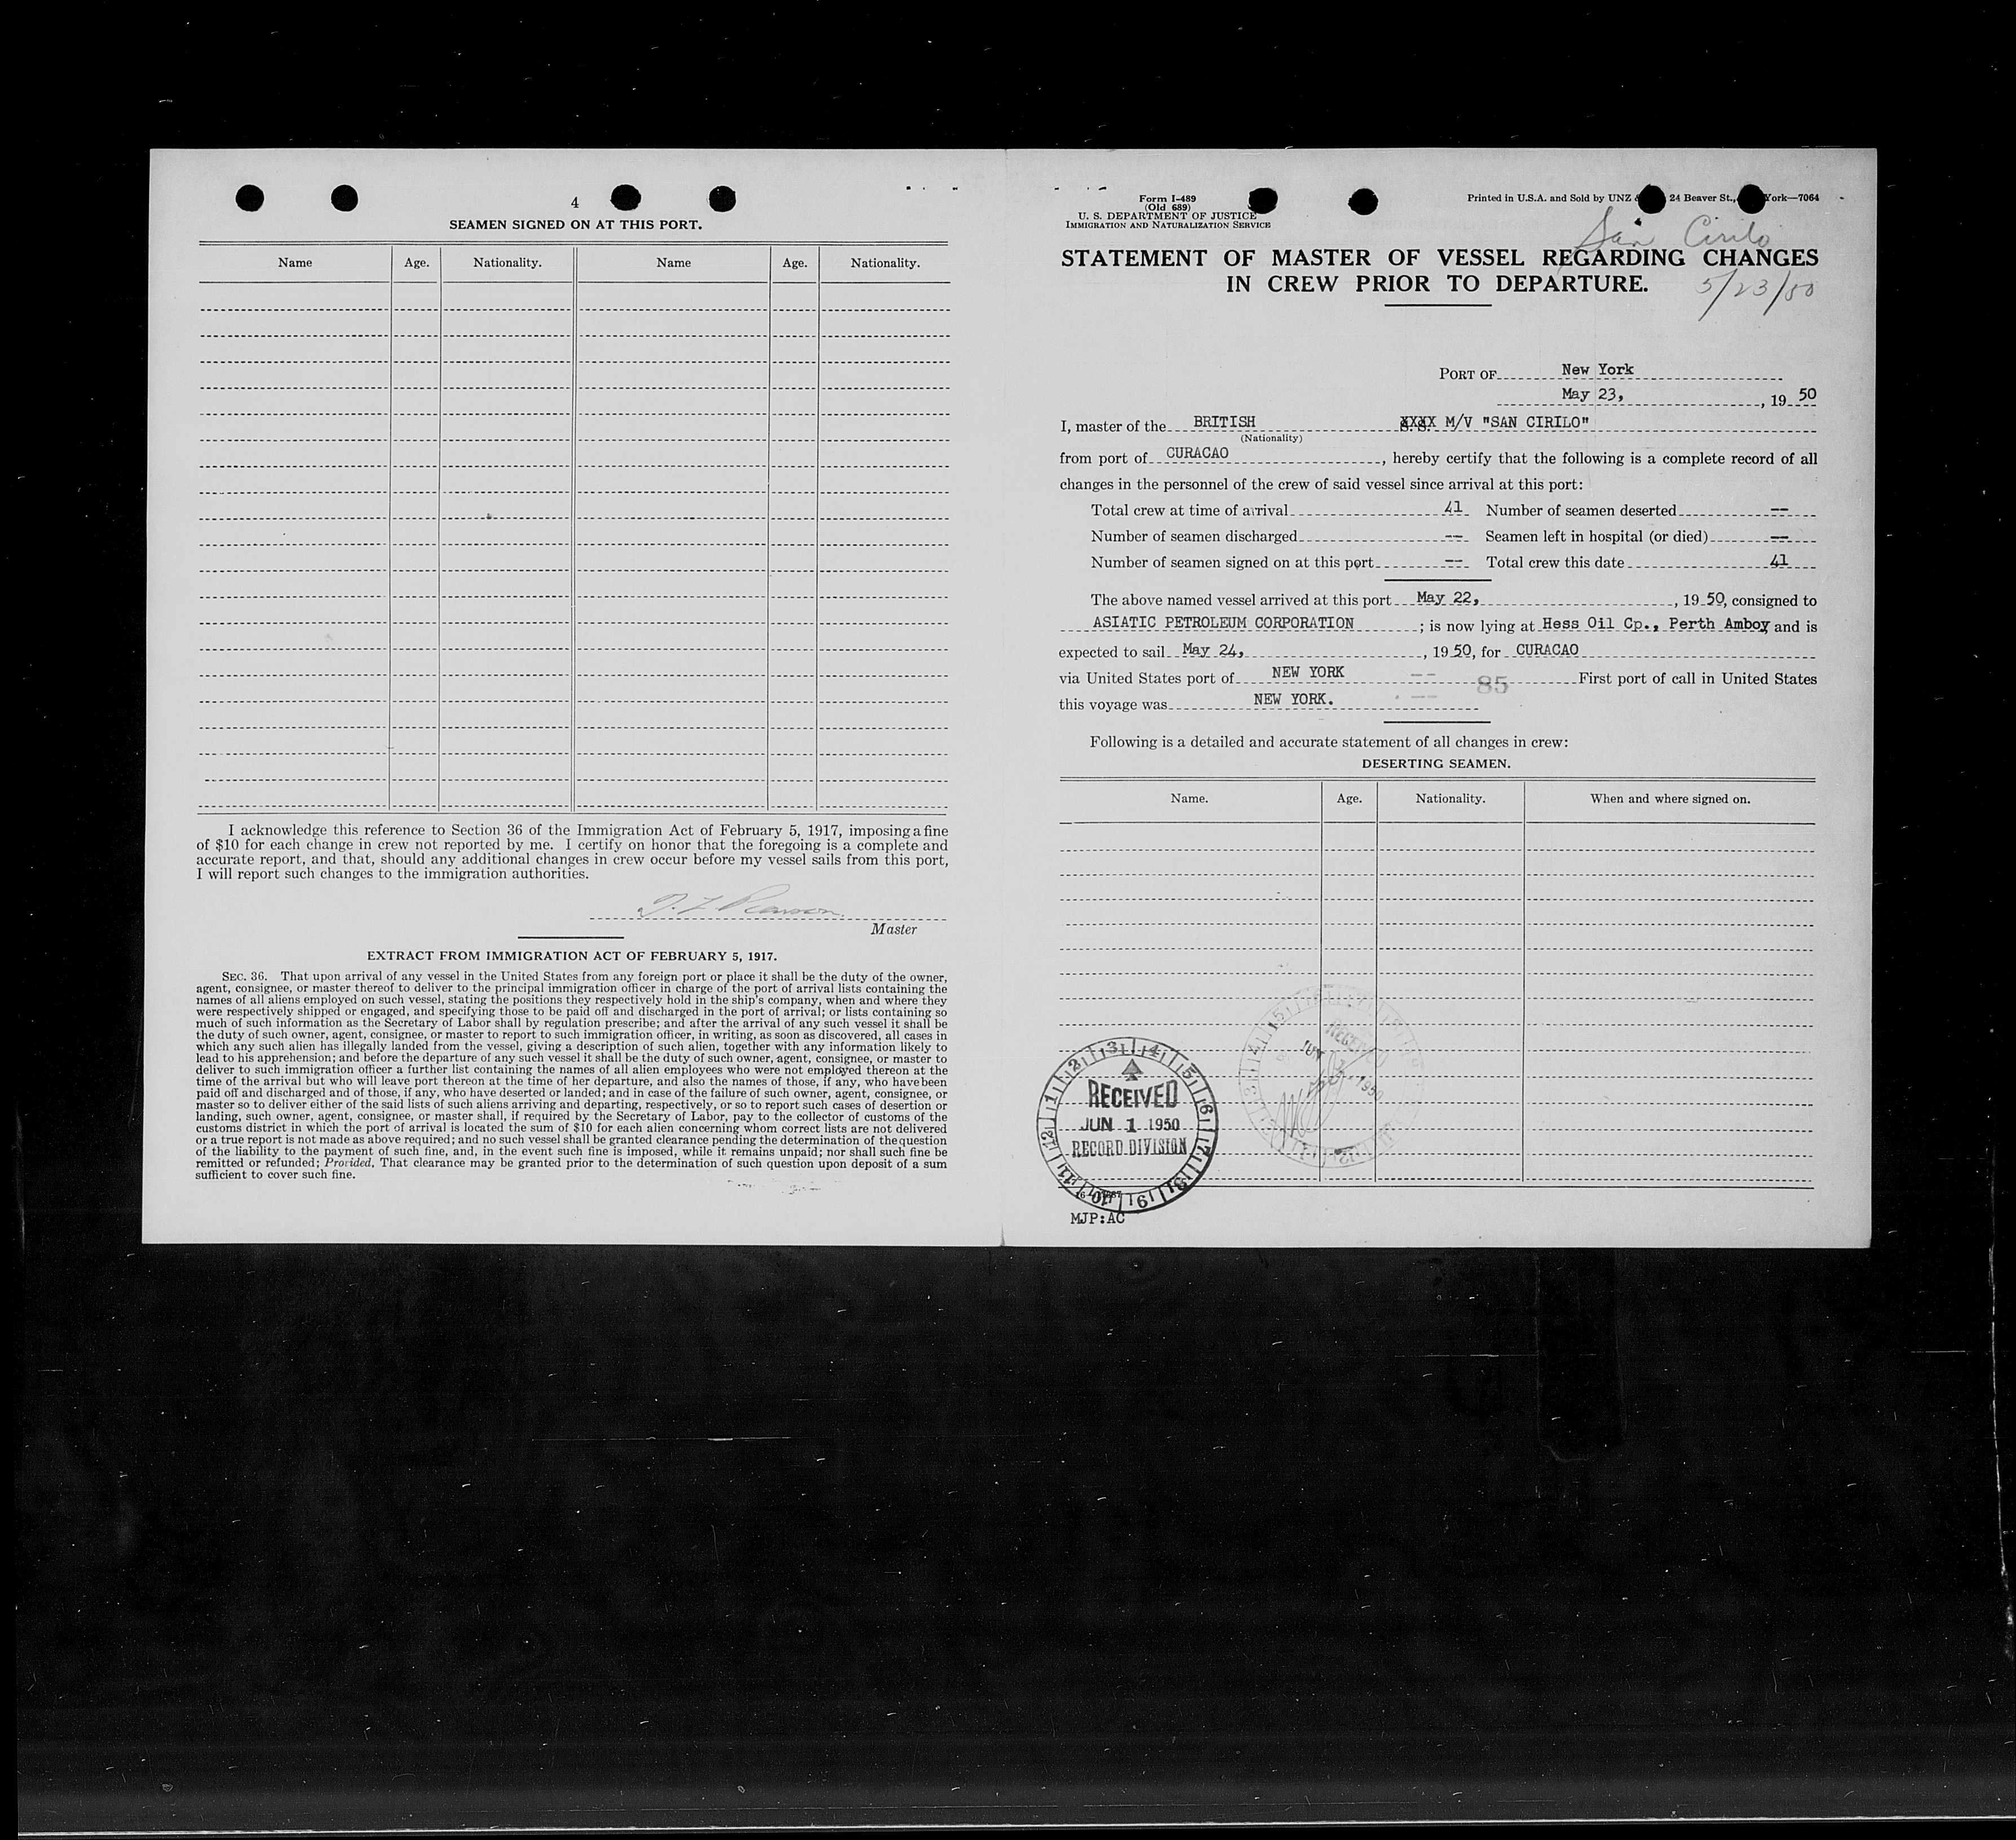 4
SEAMEN SIGNED ON AT THIS PORT.
Name Age. Nationality. Name Age. Nationality.
I acknowledge this reference to Section 36 of the Immigration Act of February 5, 1917, imposing a fine
of $10 for each change in crew not reported by me. I certify on honor that the foregoing is a complete and
accurate report, and that, should any additional changes in crew occur before my vessel sails from this port,
I will report such changes to the immigration authorities.
Master
EXTRACT FROM IMMIGRATION ACT OF FEBRUARY 5, 1917.
SEC. 36. That upon arrival of any vessel in the United States from any foreign port or place it shall be the duty of the owner,
agent, consignee, or master thereof to deliver to the principal immigration officer in charge of the port of arrival lists containing the
names of all aliens employed on such vessel, stating the positions they respectively hold in the ship's company, when and where they
were respectively shipped or engaged, and specifying those to be paid off and discharged in the port of arrival; or lists containing so
much of such information as the Secretary of Labor shall by regulation prescribe; and after the arrival of any such vessel it shall be
the duty of such owner, agent, consignee, or master to report to such immigration officer, in writing, as soon as discovered, all cases in
which any such alien has illegally landed from the vessel, giving a description of such alien, together with any information likely to
lead to his apprehension; and before the departure of any such vessel it shall be the duty of such owner, agent, consignee, or master to
deliver to such immigration officer a further list containing the names of all alien employees who were not employed thereon at the
time of the arrival but who will leave port thereon at the time of her departure, and also the names of those, if any, who have been
paid off and discharged and of those, if any, who have deserted or landed; and in case of the failure of such owner, agent, consignee, or
master so to deliver either of the said lists of such aliens arriving and departing, respectively, or so to report such cases of desertion or
landing, such owner, agent, consignee, or master shall, if required by the Secretary of Labor, pay to the collector of customs of the
customs district in which the port of arrival is located the sum of $10 for each alien concerning whom correct lists are not delivered
or a true report is not made as above required; and no such vessel shall be granted clearance pending the determination of the question
of the liability to the payment of such fine, and, in the event such fine is imposed, while it remains unpaid; nor shall such fine be
remitted or refunded; Provided, That clearance may be granted prior to the determination of such question upon deposit of a sum
sufficient to cover such fine.
Form I-489
(Old 689)
U. S. DEPARTMENT OF JUSTICE
IMMIGRATION AND NATURALIZATION SERVICE
Printed in U.S.A. and Sold by UNZ 24 Beaver St., York—7064
San Cirilo
STATEMENT OF MASTER OF VESSEL REGARDING CHANGES
IN CREW PRIOR TO DEPARTURE.
5/23/50
PORT OF New York
May 23, , 19 50
I, master of the BRITISH XXXX M/V "SAN CIRILO"
(Nationality)
from port of CURACAO , hereby certify that the following is a complete record of all
changes in the personnel of the crew of said vessel since arrival at this port:
Total crew at time of arrival 41 Number of seamen deserted --
Number of seamen discharged -- Seamen left in hospital (or died) --
Number of seamen signed on at this port -- Total crew this date 41
The above named vessel arrived at this port May 22, , 19 50, consigned to
ASIATIC PETROLEUM CORPORATION ; is now lying at Hess Oil Cp., Perth Amboy and is
expected to sail May 24, , 19 50, for CURACAO
via United States port of NEW YORK -- 85 First port of call in United States
this voyage was NEW YORK. --
Following is a detailed and accurate statement of all changes in crew:
DESERTING SEAMEN.
Name. Age. Nationality. When and where signed on.
RECEIVED
JUN 1 1950
RECORD DIVISION
RECEIVED
JUN 1950
MJP:AC